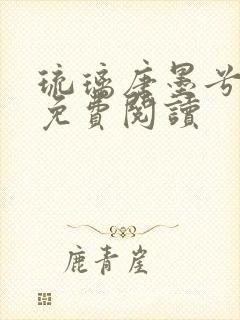 琉璃唐墨兮
免費閱讀
鹿青崖